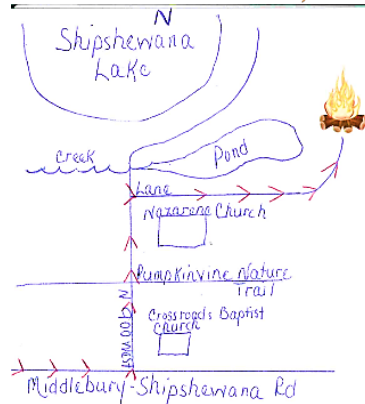 N
Shipshewana
Lake
Creek
Pond
Lane
Nazarene Church
Pumpkinvine Nature
Trail
Crossroads Baptist
Church
Middlebury-Shipshewana Rd